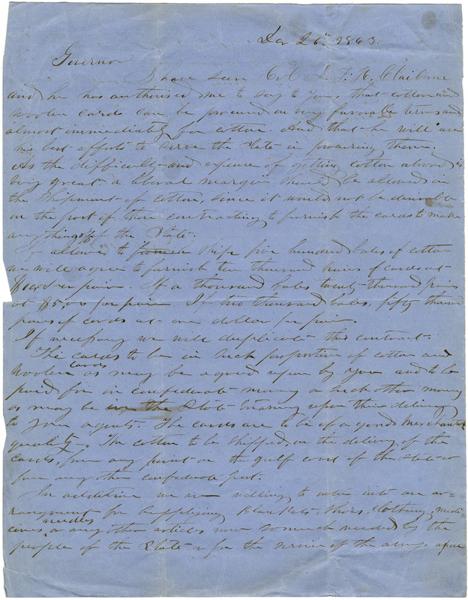 Dec 26th 1863.
Governor
I have seen Col J. F. H. Claiborne
and he has authorised me to say to you that cotton and
woolen cards can be procured on very favorable terms and
almost immediately for cotton. And that he will use
his best efforts to serve the State in procuring them.
As the difficulty and expense of getting cotton abroad is
very great a liberal margin should be allowed in
the shipment of cotton, since it would not be desirable
on the part of those contracting to furnish the cards to make
anything off the State.
If allowed to ship five hundred bales of cotton
we will agree to furnish ten thousand pairs of cards at
per pair. If a thousand bales twenty thousand pairs
at per pair. If two thousand bales, fifty thousand
pairs of cards at one dollar per pair.
If necessary we will duplicate this contract.
The cards to be in such proportion of cotton and
woolen cards as may be agreed upon by you and to be
paid for in confederate money or such other money
as may be in the State treasury upon their delivery
to your agents. The cards are to be of a good merchantable
quality. The cotton to be shipped, on the delivery of the
cards, from any point on the gulf coast of the State or
from any other confederate port.
In addition we are willing to enter into an ar-
rangement for supplying blankets, shoes, clothing, medi-
cines, needles or any other articles now so much needed by the
people of the State or for the service of the army upon